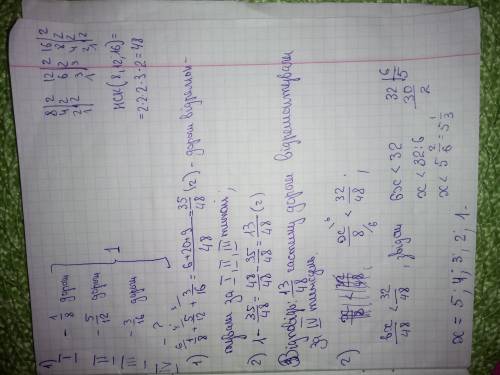 1)
I - 1/8 дороги
II - 5/12 дороги
III - 3/16 дороги
IV - ?
1
8|2 12|2 16|2
4|2 6|2 8|2
2|2 3|3 4|2
1| 1| 2|2
1|
НСК(8,12,16)=
=2·2·2·3·2=48
1) 1/8 + 5/12 + 3/16 = 6+20+9/48 = 35/48 (г) - дороги
тували за I, II, III тижні;
2) 1 - 35/48 = 48/48 - 35/48 = 13/48 (г)
Відповідь: 13/48 частину дороги відремонтували
за IV тиждень.
2) x/8 < 32/48 ;
6x/48 < 32/48 , звідси 6x < 32
x < 32:6
x < 5 2/6 = 5 1/3
32|6
30|5
2
x = 5; 4; 3; 2; 1.